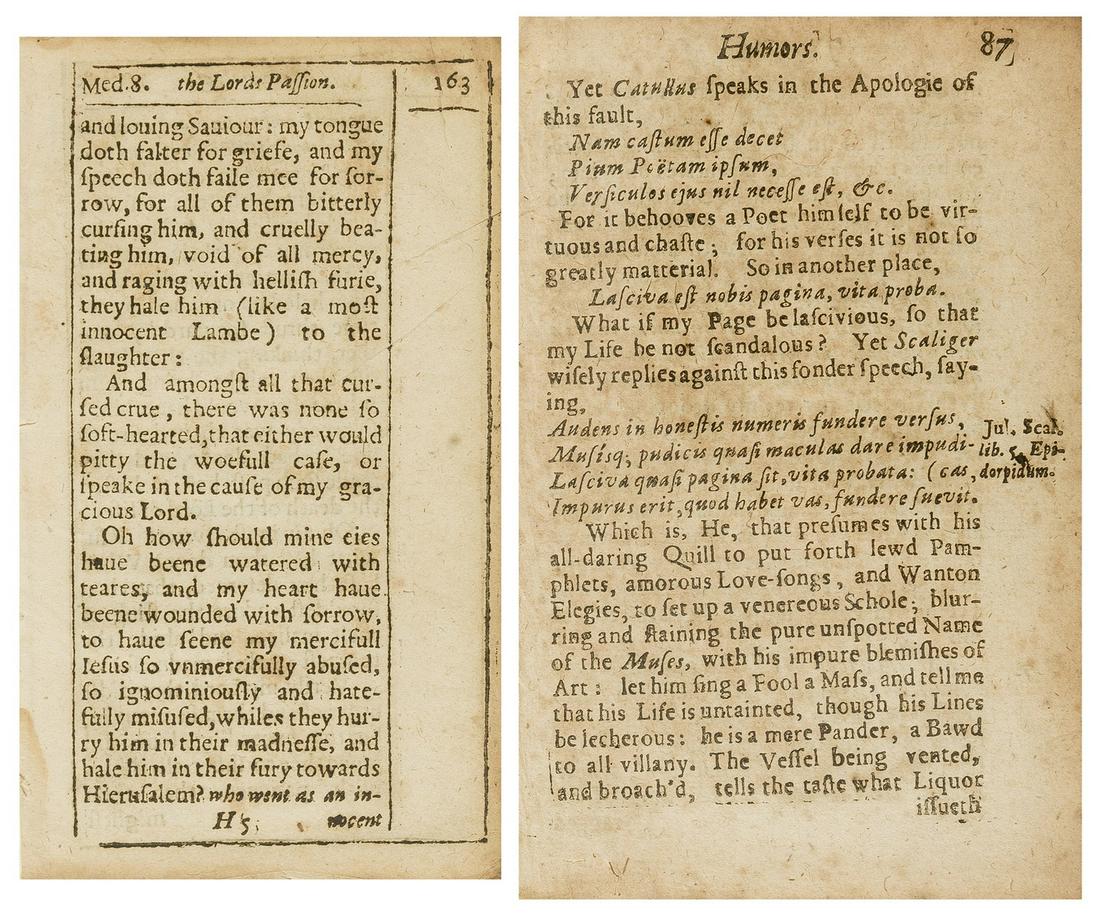 Med.8. the Lords Paſſion. 163
and louing Sauiour: my tongue
doth falter for griefe, and my
ſpeech doth faile mee for ſor-
row, for all of them bitterly
curſing him, and cruelly bea-
ting him, void of all mercy,
and raging with helliſh furie,
they hale him (like a moſt
innocent Lambe) to the
ſlaughter:
And amongſt all that cur-
ſed crue, there was none ſo
ſoft-hearted, that either would
pitty the woefull caſe, or
ſpeake in the cauſe of my gra-
cious Lord.
Oh how ſhould mine eies
haue beene watered with
teares, and my heart haue
beene wounded with ſorrow,
to haue ſeene my mercifull
Ieſus ſo vnmercifully abuſed,
ſo ignominiouſly and hate-
fully miſuſed, whiles they hur-
ry him in their madneſſe, and
hale him in their fury towards
Hieruſalem? who went as an in-
H5 nocent
Humors. 87
Yet Catullus ſpeaks in the Apologie of
this fault,
Nam caſtum eſſe decet
Pium Poëtam ipſum,
Verſiculos ejus nil neceſſe eſt, &c.
For it behooves a Poet himſelf to be vir-
tuous and chaſte; for his verſes it is not ſo
greatly matterial. So in another place,
Laſciva eſt nobis pagina, vita proba.
What if my Page be laſcivious, ſo that
my Life be not ſcandalous? Yet Scaliger
wiſely replies againſt this fonder ſpeech, ſay-
ing,
Audens in honeſtis numeris fundere verſus,
Muſisq; pudicis quaſi maculas dare impudi-
Laſciva quaſi pagina ſit, vita probata: (cas,
Impurus erit, quod habet vas, fundere ſuevit.
Jul. Scal.
lib. 5. Epi-
dorpidum.
Which is, He, that preſumes with his
all-daring Quill to put forth lewd Pam-
phlets, amorous Love-ſongs, and Wanton
Elegies, to ſet up a venereous Schole; blur-
ring and ſtaining the pure unſpotted Name
of the Muſes, with his impure blemiſhes of
Art: let him ſing a Fool a Maſs, and tell me
that his Life is untainted, though his Lines
be lecherous: he is a mere Pander, a Bawd
to all villany. The Veſſel being vented,
and broach'd, tells the taſte what Liquor
iſſueth